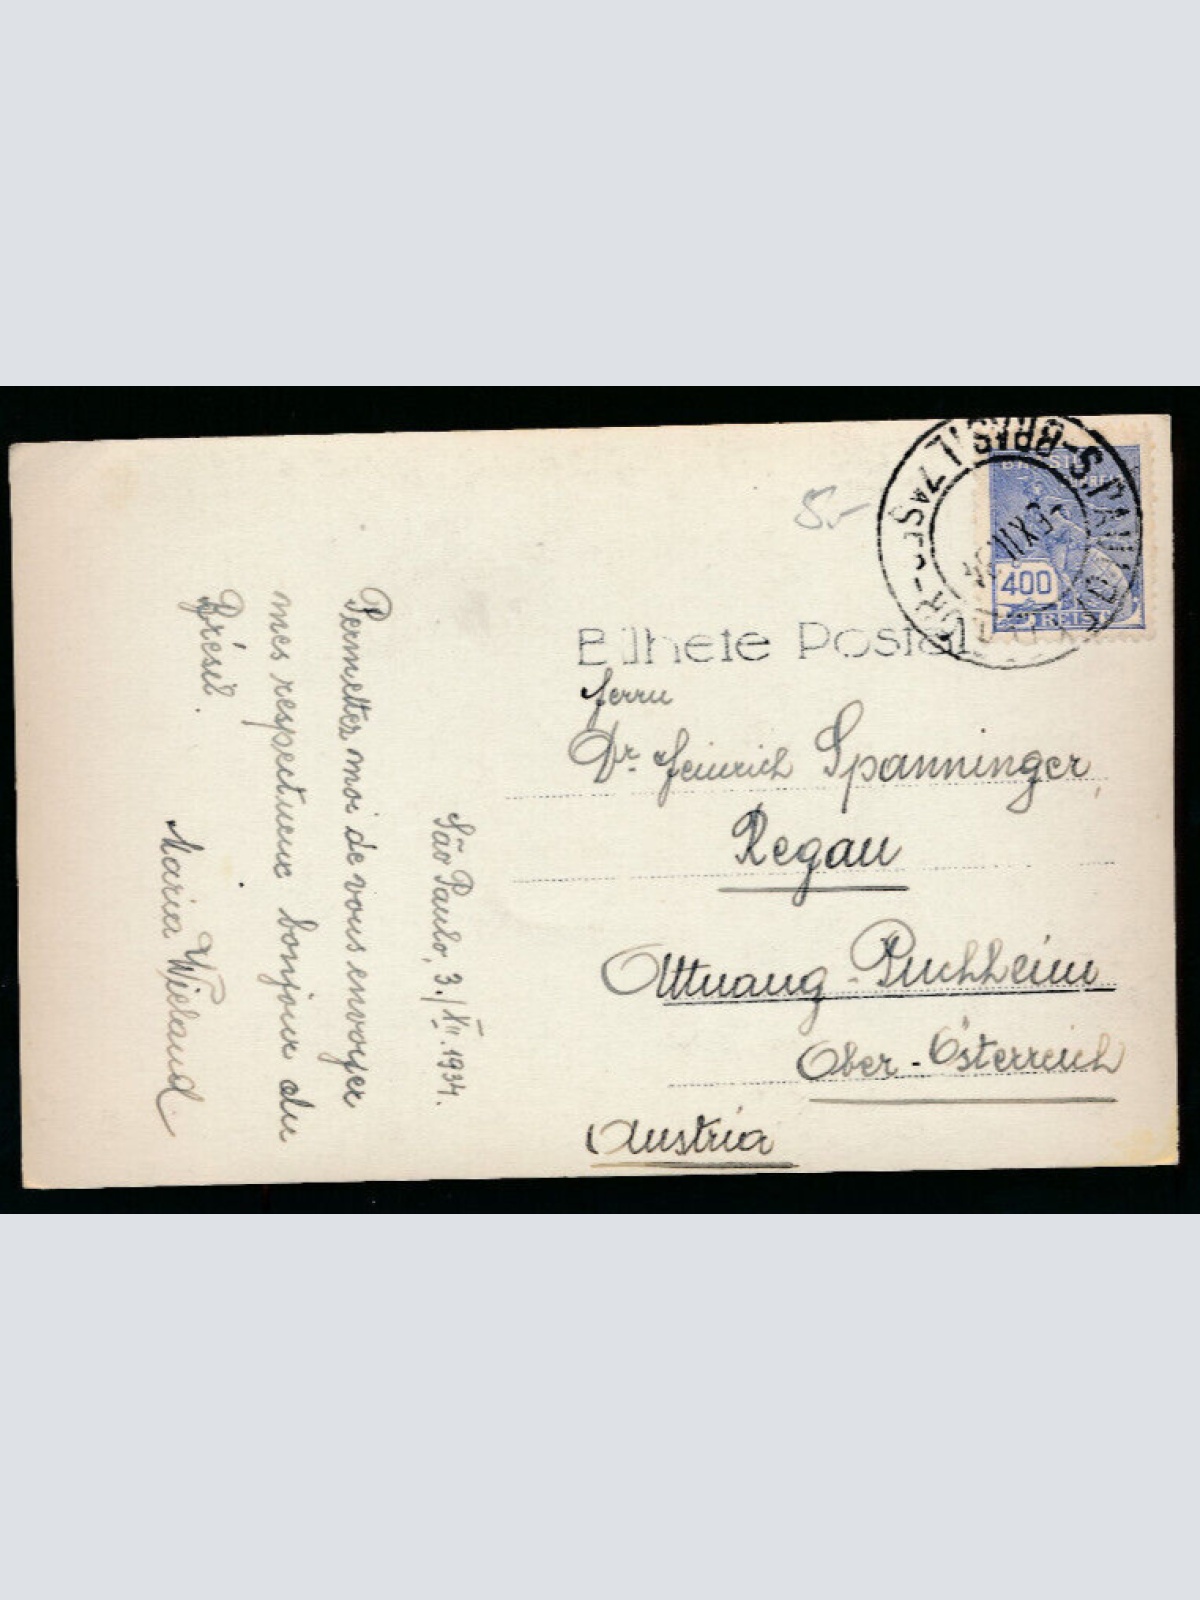 São Paulo, 3./XII.1934.
Permettez moi de vous envoyer
mes respectueux bonjour du
Brésil.
Maria Wieland.
5.-
BRASIL
400
REIS
S. PAULO
BRASIL
Bilhete Postal
Herrn
Dr. Heinrich Spanninger,
Regau
Attnang-Puchheim
Ober-Österreich
Austria